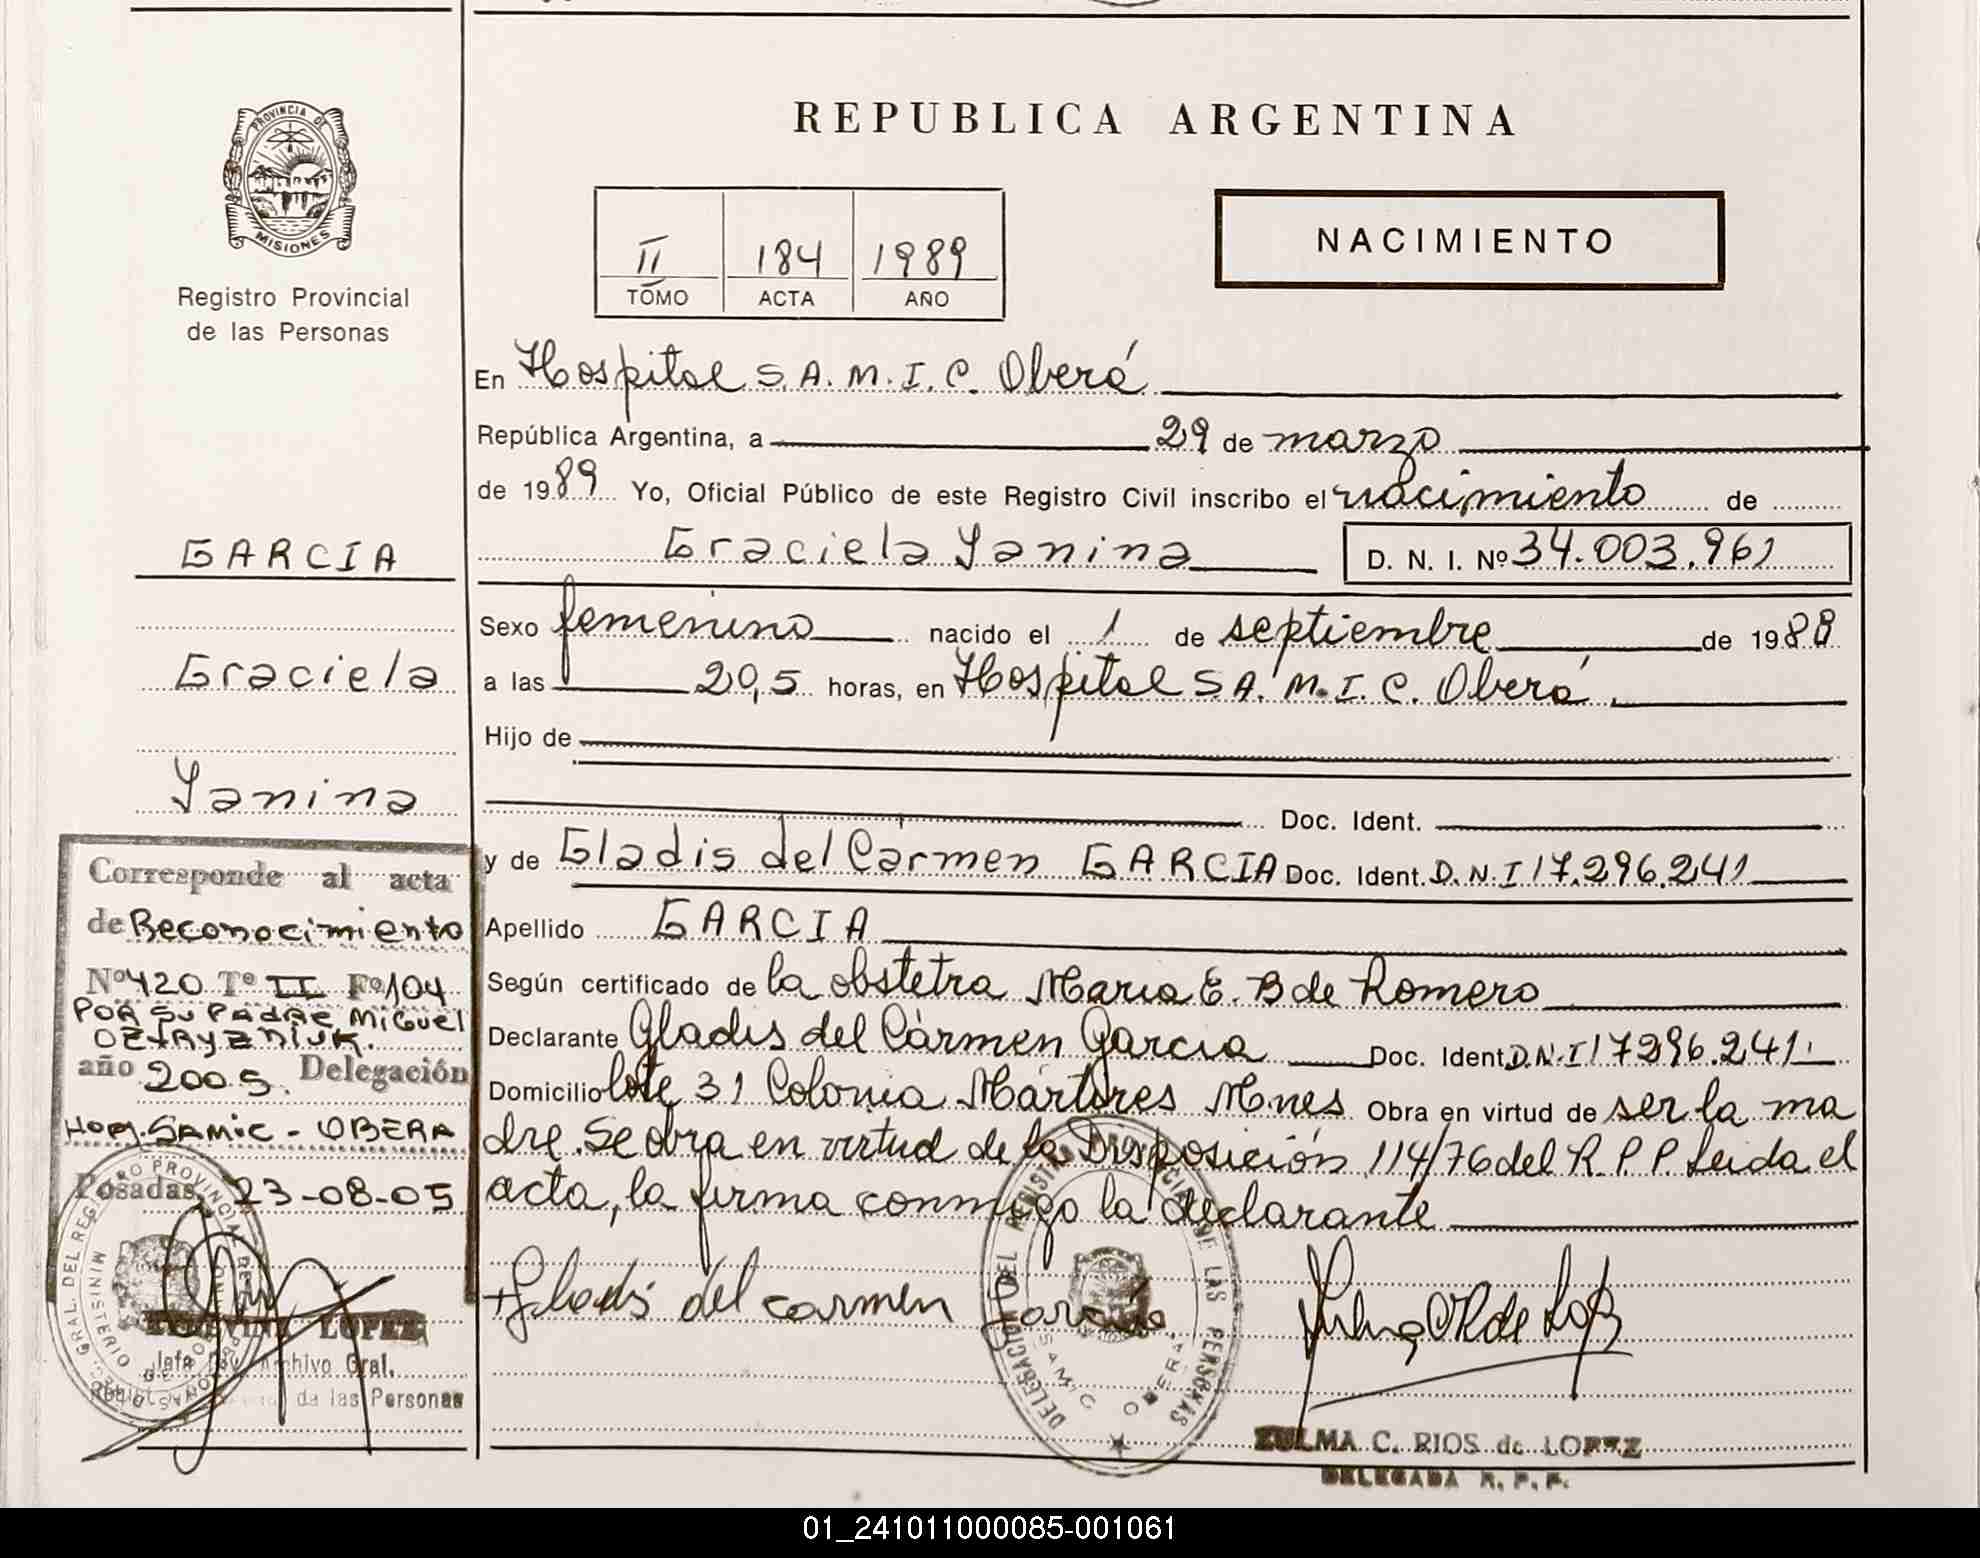 REPUBLICA ARGENTINA
PROVINCIA DE
MISIONES
Registro Provincial
de las Personas
II 184 1989
TOMO ACTA AÑO
NACIMIENTO
En Hospital S.A.M.I.C. Oberá
República Argentina, a 29 de marzo
de 1989 Yo, Oficial Público de este Registro Civil inscribo el nacimiento de
Graciela Yanina D. N. I. Nº 34.003.961
Sexo femenino nacido el 1 de septiembre de 1988
a las 20,5 horas, en Hospital S.A.M.I.C. Oberá
Hijo de
Doc. Ident.
y de Gladis del Carmen GARCIA Doc. Ident. D.N.I 17.296.241
Apellido GARCIA
Según certificado de la obstetra Maria E. B de Romero
Declarante Gladis del Cármen Garcia Doc. Ident. D.N.I 17296.241
Domicilio lote 31 Colonia Mártires Mnes Obra en virtud de ser la ma
dre. Se obra en virtud de la Disposición 114/76 del R.P.P. Leida el
acta, la firma conmigo la declarante
Gladis del carmen Garcia
DELEGACION DEL REGISTRO PROVINCIAL DE LAS PERSONAS
SAMIC OBERA
ZULMA C. RIOS de LOPEZ
DELEGADA R. P. P.
GARCIA
Graciela
Yanina
Corresponde al acta
de Reconocimiento
Nº 420 Tº II Fº 104
POR SU PADRE MIGUEL
año 2005. Delegación
Hosp. SAMIC - OBERA
Posadas, 23-08-05
LOPEZ
Jefe Archivo Gral.
de las Personas
01_241011000085-001061